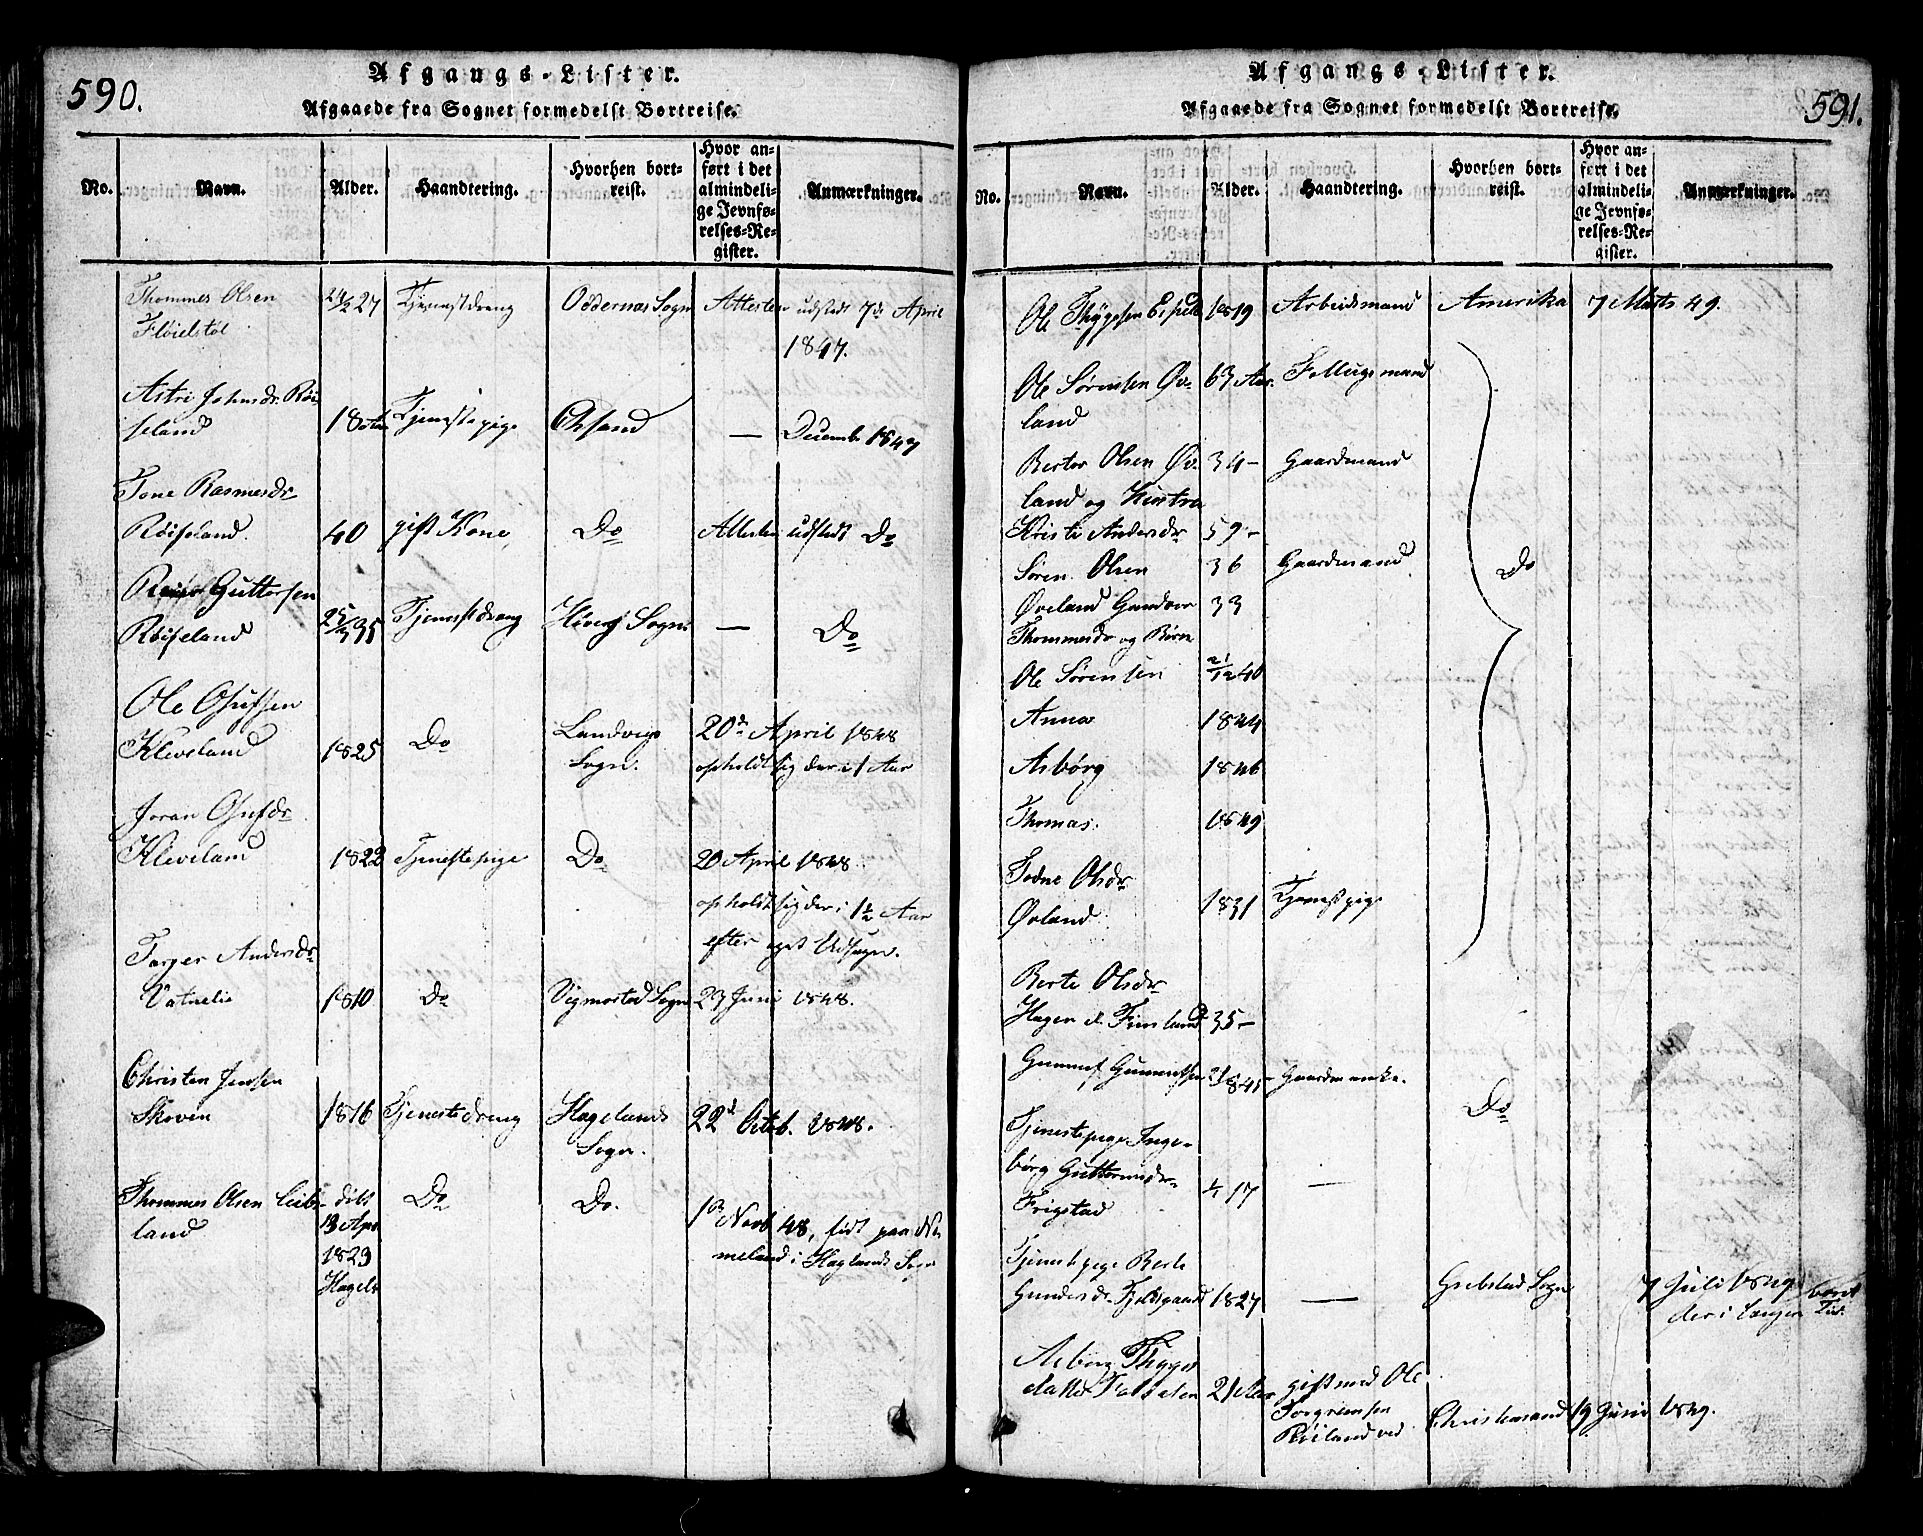 590.
Afgangs-Lister.
Afgaaede fra Sognet formedelst Bortreise.
No. Navn. Alder. Haandtering. Hvorhen bortreist. Hvor anført i det almindelige Jevnførelses-Register. Anmærkninger.
Thommes Olsen 24/2 27 Tjenestdreng Oddernæs Sogn Attesten udstedt 7de April
Fløielstøl 1847.
Astri Johnsdr. Røi-
seland 18 Tjenestepige Chsand — Decemb 1847
Tone Rasmusdr
Røiseland. 40 gift Kone, Do Attesten udstedt Do
Guttorsen
Røiseland 25/3 35 Tjenestdreng Sogn — Do
Ole Osufsen
Kleveland 1825 Do Landvigs 20de April 1848
Sogn. opholdt sig der i 1 Aar
Joran Osufsdr
Kleveland 1822 Tjenestepige Do 20 April 1848.
opholdt sig der i 1½ Aar
efter eget Udsagn.
Torger Andersdr
Vatnelie 1810 Do Vigmostad Sogn 23 Juni 1848.
Christen Jensen
Skoven 1816 Tjenestedreng Hægelands 22d Octob. 1848.
Sogn.
Thommes Olsen Leibs- døbt Do Do. 1ste Novb 48, født paa
land 13 Apr meland i Hæglands Sogn
1823
Hægel
591.
Afgangs-Lister.
Afgaaede fra Sognet formedelst Bortreise.
No. Navn. Alder. Haandtering. Hvorhen bortreist. Hvor anført i det almindelige Jevnførelses-Register. Anmærkninger.
Ole Thygesen 1819 Arbeidsmand Amerika 7 Marts 49.
Ole Sørensen Øv- 63 Aar. Føllugsmand
land
Berter Olsen Øv- 34 — Gaardmand
land og Hustru
Kristi Andersdr 59 —
Søren Olsen 36 Gaardmand Do
Øveland Gundvor 33
Thommesdr og Børn
Ole Sørensen 21/12 40
Anna 1844
Asbörg 1846
Thomas. 1849
Todne Olsdr
Øvland 1831 Tjenestpige
Berte Olsdr
Hagen d. Finsland 35 —
Gunnuf Gunnufsen 1841 — Gaardmanke. Do
Tjenestepige Inge-
börg Guttormsdr
Frigstad 17 —
Tjenestpige Berte
Gundersdr. Fjeldsgaard 1827 — Grebstad Sogn 7 Juli 1849 været
der i længere Tid.
Asborg Thyges
datter 21 Aar gift med Ole
Torgrimsen Christiansand 19 Juni 1849.
Røiland ved